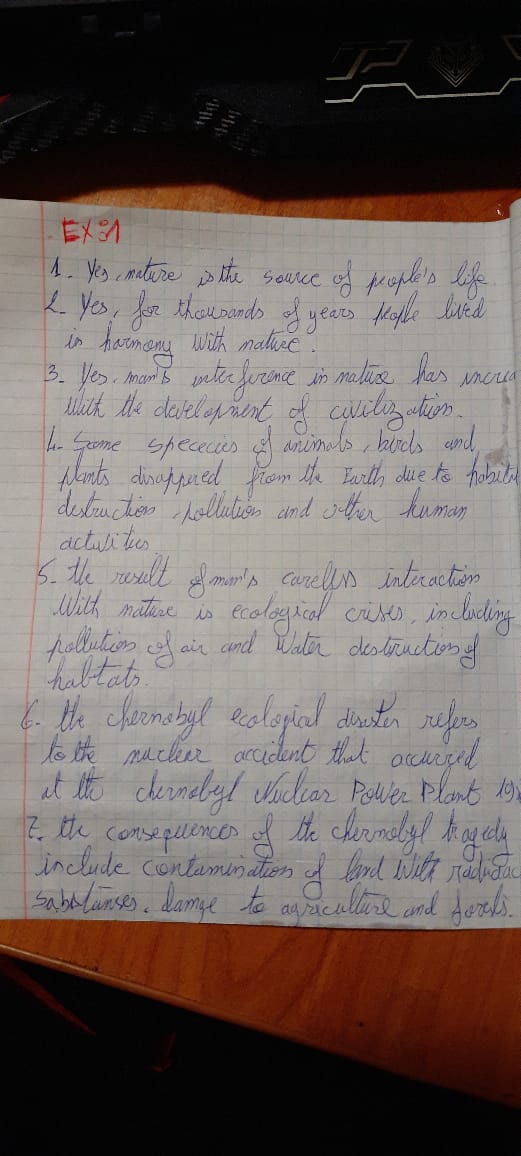 EX:1
1- Yes, nature is the source of people's life.
2- Yes, for thousands of years people lived
in harmony with nature.
3- Yes, man's interference in nature has increa
With the development of civilization.
4- Some spececies of animals, birds and
plants disappeared from the Earth due to habita
destruction, pollution and other human
activities
5- the result of man's careless interaction
With nature is ecological crises, including
pollution of air and Water destruction of
habtats.
6- the chernobyl ecological disaster refers
to the nuclear accident that occurred
at the chernobyl Nuclear Power Plant 19
7- the consequences of the chernobyl tragedy
include contamination of land With
substanses, damge to agriculture and forests.